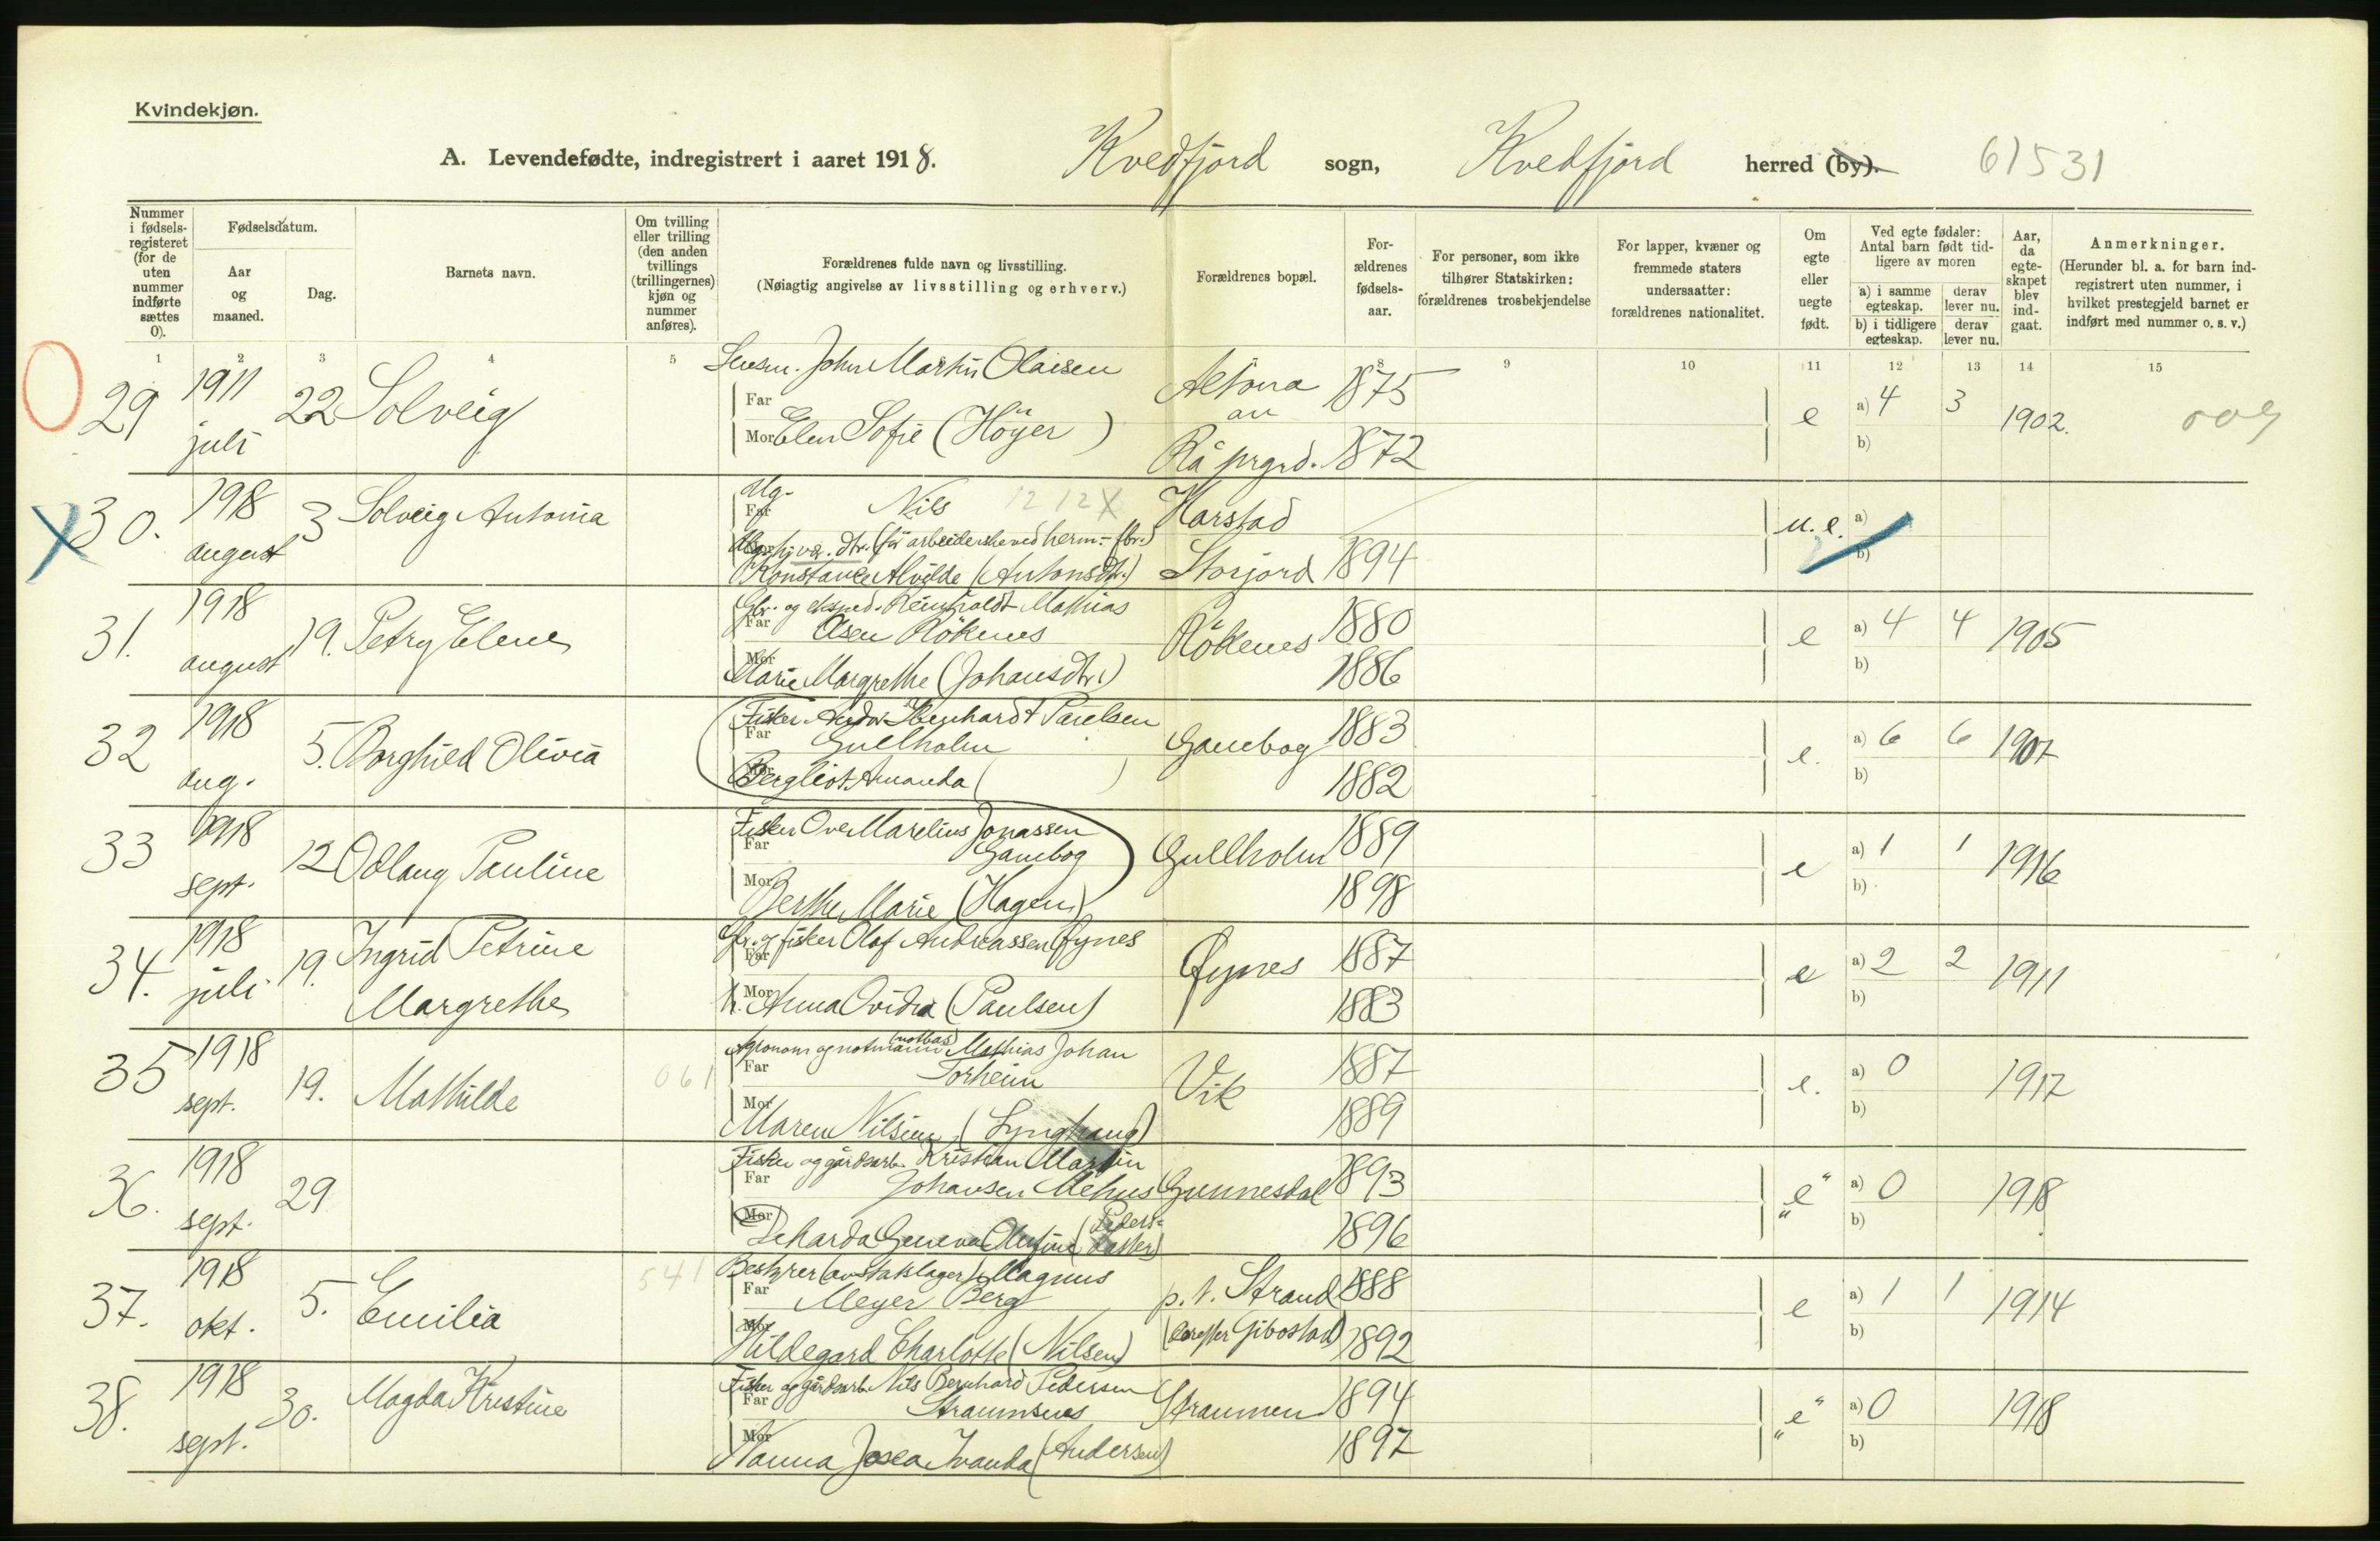 Kvindekjøn.
A. Levendefødte, indregistrert i aaret 1918.
Kvedfjord sogn, Kvedfjord herred (by). 61531
Nummer i fødsels-registeret (for de uten nummer indførte sættes 0).
Fødselsdatum.
Aar og maaned.
Dag.
Barnets navn.
Om tvilling eller trilling (den anden tvillings (trillingernes) kjøn og nummer anføres).
Forældrenes fulde navn og livsstilling.
(Nøiagtig angivelse av livsstilling og erhverv.)
Forældrenes bopæl.
For-ældrenes fødsels-aar.
For personer, som ikke tilhører Statskirken: forældrenes trosbekjendelse
For lapper, kvæner og fremmede staters undersaatter: forældrenes nationalitet.
Om egte eller uegte født.
Ved egte fødsler: Antal barn født tid-ligere av moren
a) i samme egteskap. derav lever nu.
b) i tidligere egteskap. derav lever nu.
Aar, da egte-skapet blev ind-gaat.
Anmerkninger.
(Herunder bl. a. for barn ind-registrert uten nummer, i hvilket prestegjeld barnet er indført med nummer o. s. v.)
1 2 3 4 5 8 9 10 11 12 13 14 15
29 1911 juli 22 Solveig
John Martin Olaisen
Far
Mor Elen Sofie (Höyer)
1875
Rå prgrd. 1872
e a) 4 3 1902.
b)
30. 1918 august 3 Solveig Antonia
Ug.
Far Nils 12 12 X Harstad
Konstance Alvilde (Antonsdtr.) Storjord 1894
u.e. a)
b)
31. 1918 august 19. Petry Elene
Gbr. og eksped. Reinholdt Mathias
Far Olsen Rökenes Rökenes 1880
Mor
Marie Margrethe (Johansdtr.) 1886
e a) 4 4 1905
b)
32 1918 aug. 5. Borghild Olivia
Fisker Andor Ibenhardt Paulsen
Far Gullholm Gauebog 1883
Mor
Bergliot Amanda ( ) 1882
e. a) 6 6 1907
b)
33 1918 sept. 12 Odlaug Pauline
Fisker Ove Marelius Jonassen
Far Gauebog Gullholm 1889
Mor
Berthe Marie (Hagen) 1898
e a) 1 1 1916
b)
34. 1918 juli 19. Ingrid Petrine Margrethe
Gbr. og fisker Olaf Andreassen Øynes
Far Øynes 1887
Mor
h. Anna Ovidia (Paulsen) 1883
e a) 2 2 1911
b)
35 1918 sept. 19. Mathilde 061
Agronom og notmann (notbas) Mathias Johan
Far Torheim Vik 1887
Mor
Maren Nilsine (Lynghaug) 1889
e. a) 0 1917
b)
36. 1918 sept. 29
Fisker og gårdsarb. Kristian Martin
Far Johansen Mehus Gunnesdal 1893
Mor
Geneva Olufine (Peders-datter) 1896
"e" a) 0 1918
b)
37. 1918 okt. 5. Emilia 541
Bestyrer (av statslager) Magnus
Far Meyer Berg p. t. Strand 1888
Mor
Hildegard Charlotte (Nilsen) (derefter Gibostad) 1892
e a) 1 1 1914
b)
38. 1918 sept. 30. Magda Kristine
Fisker og gårdsarb. Nils Bernhard Pedersen
Far Straumsnes Straumen 1894
Mor
Nanna Josea Ivanda (Andersen) 1897
"e" a) 0 1918
b)